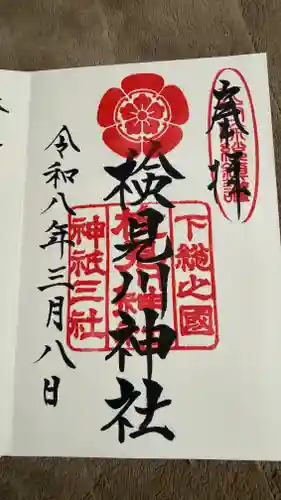 奉拝
下総之國
検見川神社
神祉三社
令和八年三月八日